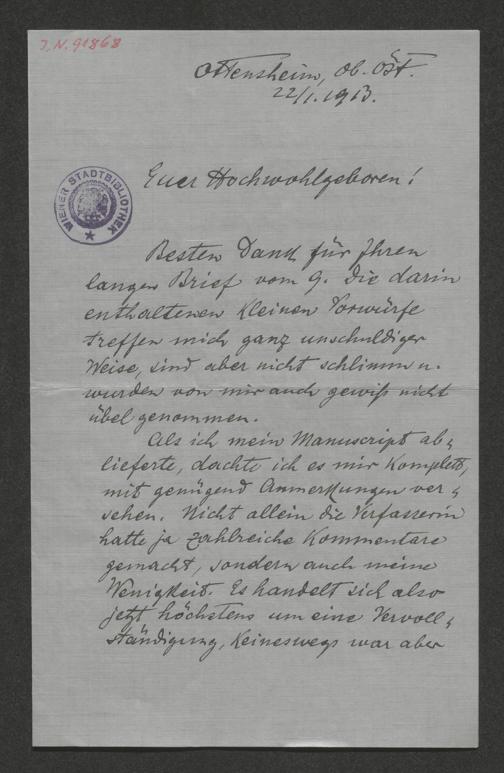 J. N. 91868
Ottensheim, Ob. Öst.
22/1. 1913.
WIENER STADTBIBLIOTHEK
Euer Hochwohlgeboren!
Besten Dank für Ihren
langen Brief vom 9. Die darin
enthaltenen kleinen Vorwürfe
treffen mich ganz unschuldiger
Weise, sind aber nicht schlimm u.
wurden von mir auch gewiß nicht
übel genommen.
Als ich mein Manuscript ab-
lieferte, dachte ich es mir komplett,
mit genügend Anmerkungen ver-
sehen. Nicht allein die Verfasserin
hatte ja zahlreiche Kommentare
gemacht, sondern auch meine
Wenigkeit. Es handelt sich also
jetzt höchstens um eine Vervoll-
ständigung, keineswegs war aber